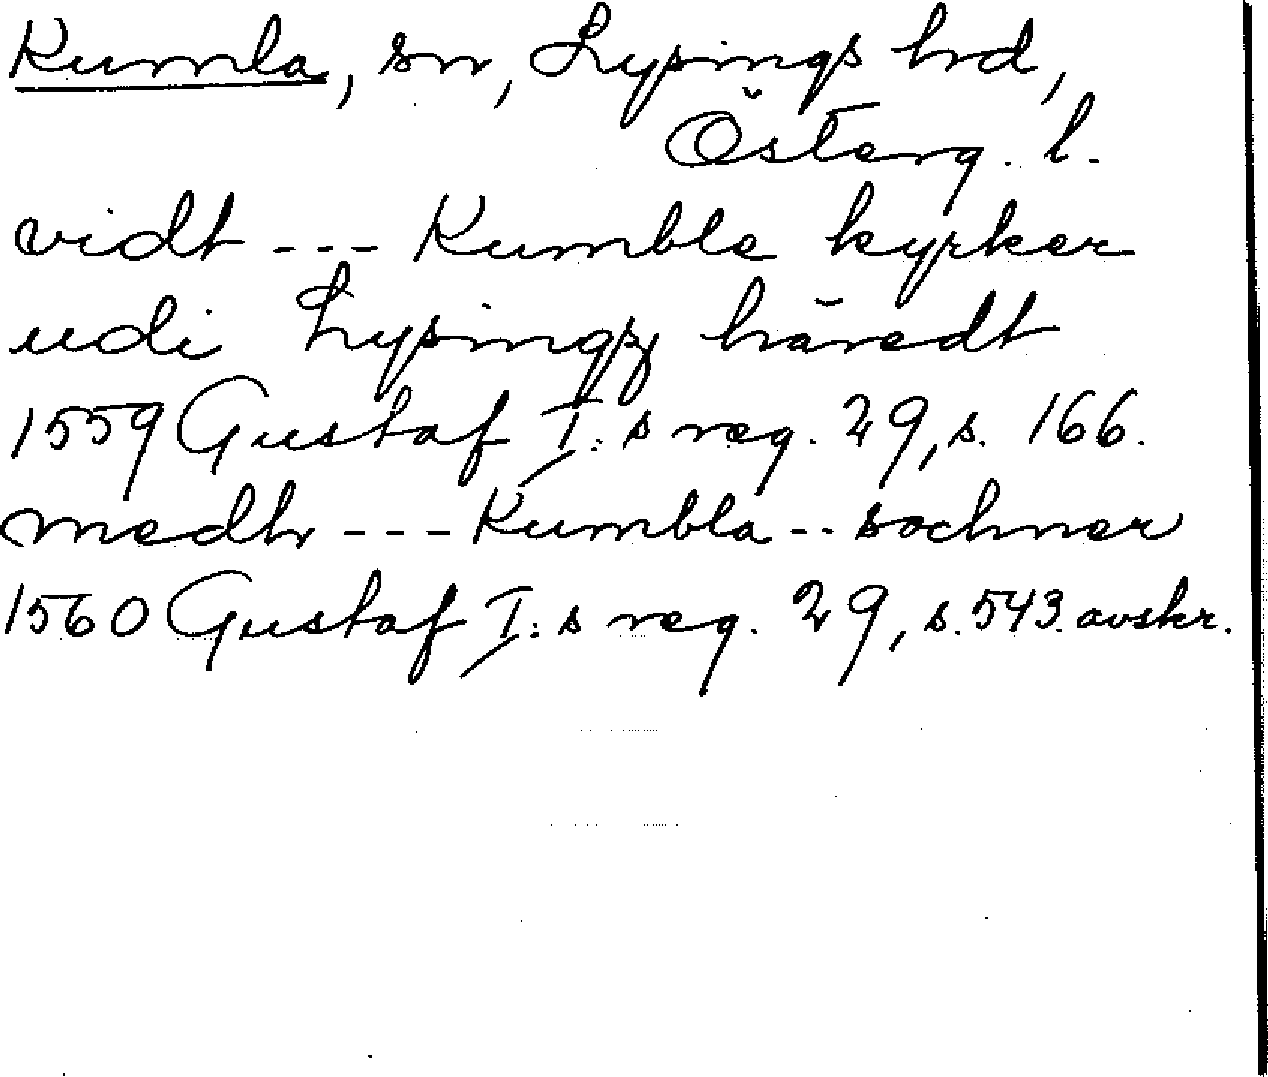 Kumla, sn, Lysings hrd,
Österg. l.
vidt --- Kumble kyrker
udi Lysingz häredt
1559 Gustaf I:s reg. 29, s. 166.
medh --- Kumbla -- sochner
1560 Gustaf I:s reg. 29, s. 543. avskr.